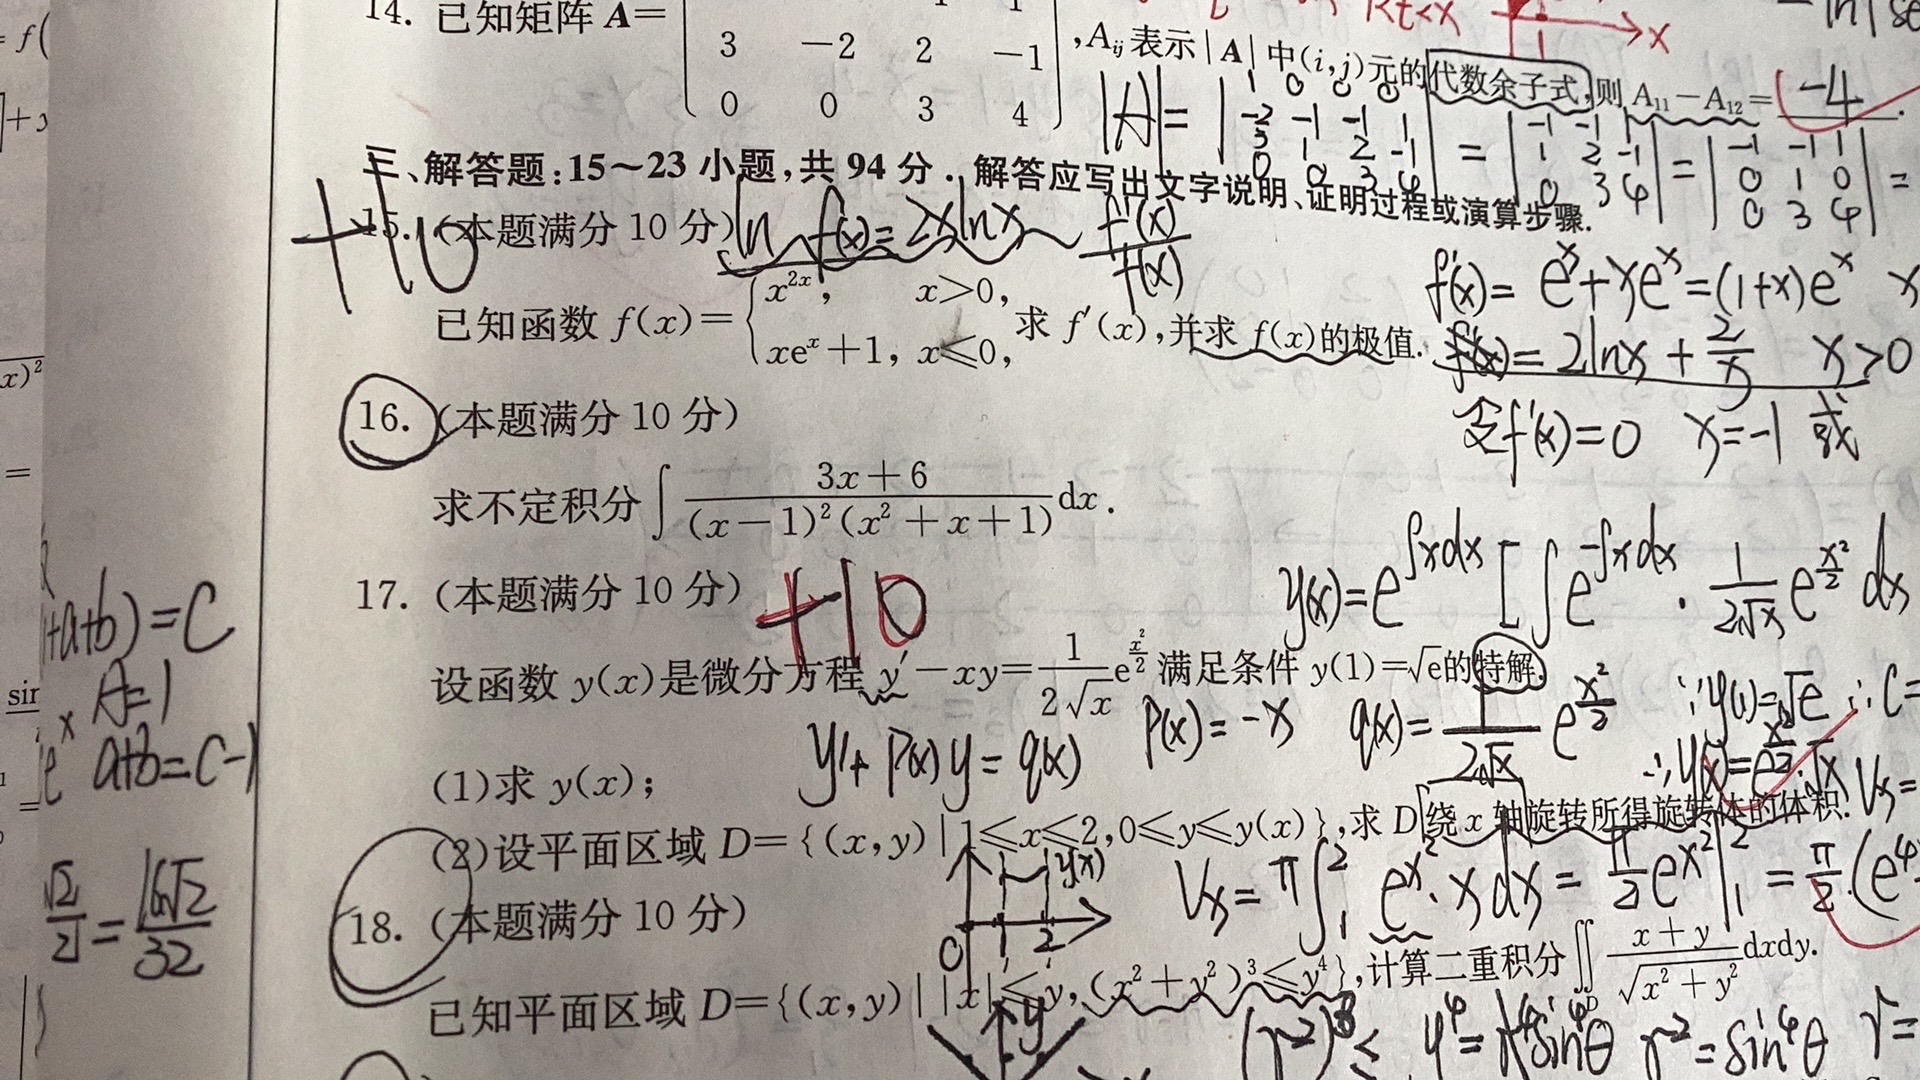 14. 已知矩阵 A=
3 −2 2 −1
0 0 3 4
,Aij 表示 |A| 中(i,j)元的代数余子式,则 A11−A12= −4 .
|A|=
1 0 0 0
-2 -1 -1 1
3 1 2 -1
0 0 3 4
=
-1 -1 1
1 2 -1
0 3 4
=
-1 -1 1
0 1 0
0 3 4
=
三、解答题:15~23 小题,共 94 分. 解答应写出文字说明、证明过程或演算步骤.
15. (本题满分 10 分)
+10
ln f(x)=2xlnx
f'(x)/f(x)
已知函数 f(x)={x^{2x}, x>0, xe^x+1, x≤0, 求 f′(x),并求 f(x)的极值.
f'(x)= e^x+xe^x=(1+x)e^x x
f'(x)= 2lnx + 2/x x>0
令f'(x)=0 x=-1
16. (本题满分 10 分)
求不定积分∫ (3x+6)/((x−1)²(x²+x+1)) dx.
17. (本题满分 10 分)
+10
y(x)=e^{∫xdx}[∫e^{-∫xdx}·1/(2√x) e^{x²/2} dx
设函数 y(x)是微分方程 y′−xy=1/(2√x) e^{x²/2} 满足条件 y(1)=√e的特解.
y'+P(x)y=q(x) P(x)=-x q(x)=1/(2√x) e^{x²/2}
∵y(1)=√e ∴C=
∴y(x)=e^{x²/2}·√x
Vx=
(1)求 y(x);
(2)设平面区域 D={(x,y)|1≤x≤2,0≤y≤y(x)},求 D 绕 x 轴旋转所得旋转体的体积.
y(x)
0 1 2
Vx=π∫₁² e^{x²}·xdx=π/2 e^{x²}|₁²=π/2(e⁴
18. (本题满分 10 分)
已知平面区域 D={(x,y)||x|≤y,(x²+y²)³≤y⁴},计算二重积分∬_D (x+y)/√(x²+y²) dxdy.
y
(r²)³≤ y⁴=r⁴sin⁴θ r²=sin⁴θ r=
+a+b)=C
A=1
a+b=C-1
√2/2=16√2/32